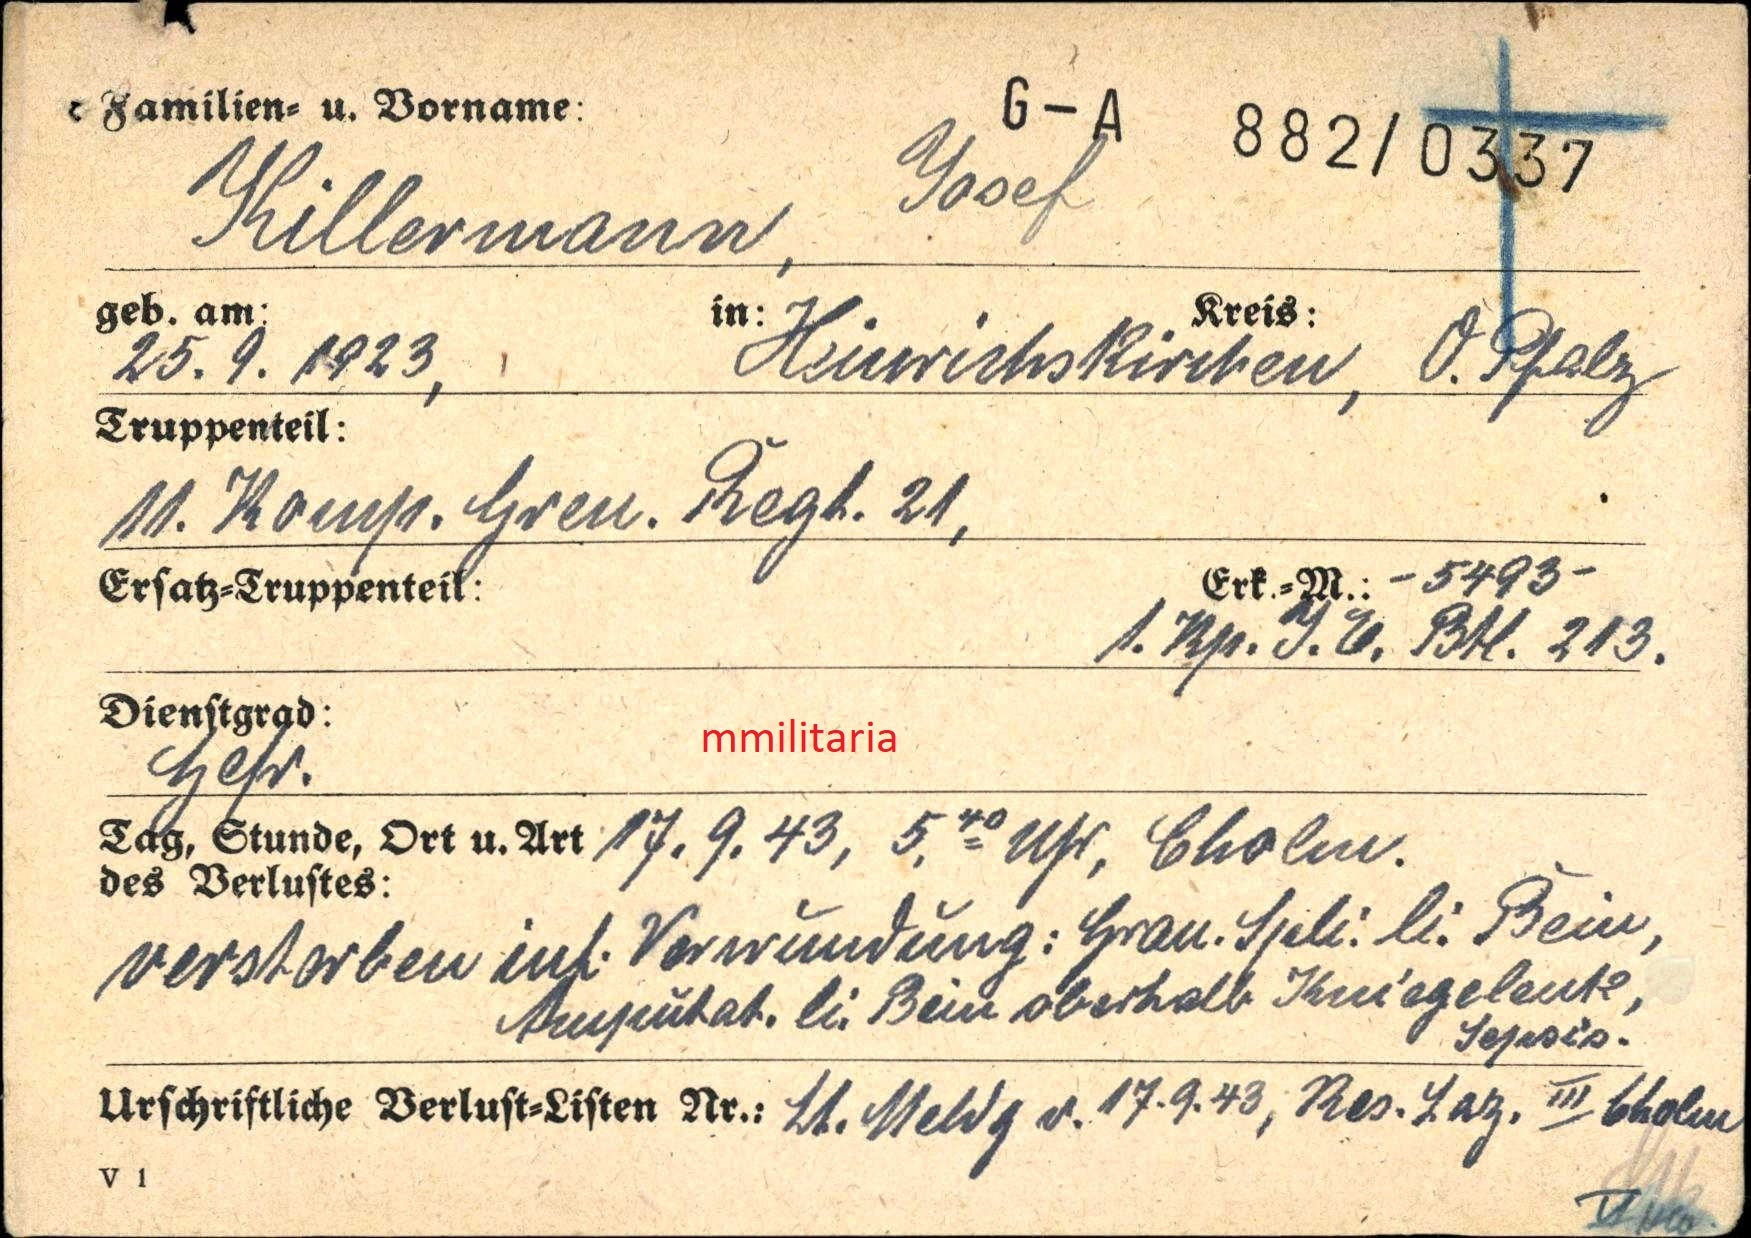 Familien- u. Vorname:
G-A 882/0337
Killermann, Josef
geb. am: in: Kreis:
25.9.1923, Heinrichskirchen, O.Pfalz
Truppenteil:
11. Komp. Gren. Regt. 21,
Ersatz-Truppenteil: Erk.-M.: -5493-
1. Kp. I.E. Btl. 213.
Dienstgrad:
Gefr.
mmilitaria
Tag, Stunde, Ort u. Art 17.9.43, 5.40 Uhr, Cholm.
des Verlustes:
verstorben inf. Verwundung: Gran. Spli. li. Bein,
Amputat. li. Bein oberhalb Kniegelenke,
Sepsis.
Urschriftliche Verlust-Listen Nr.: Lt. Meldg v. 17.9.43, Res. Laz. III Cholm
V 1